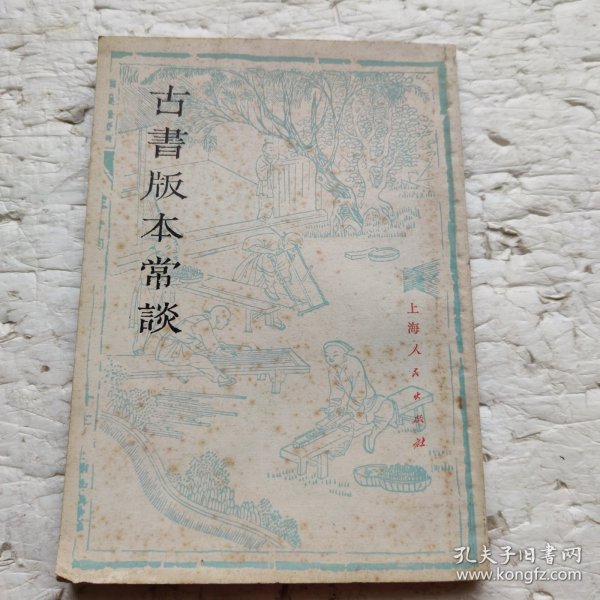 古書版本常談
上海人民出版社
孔夫子旧書网
www.kongfz.com